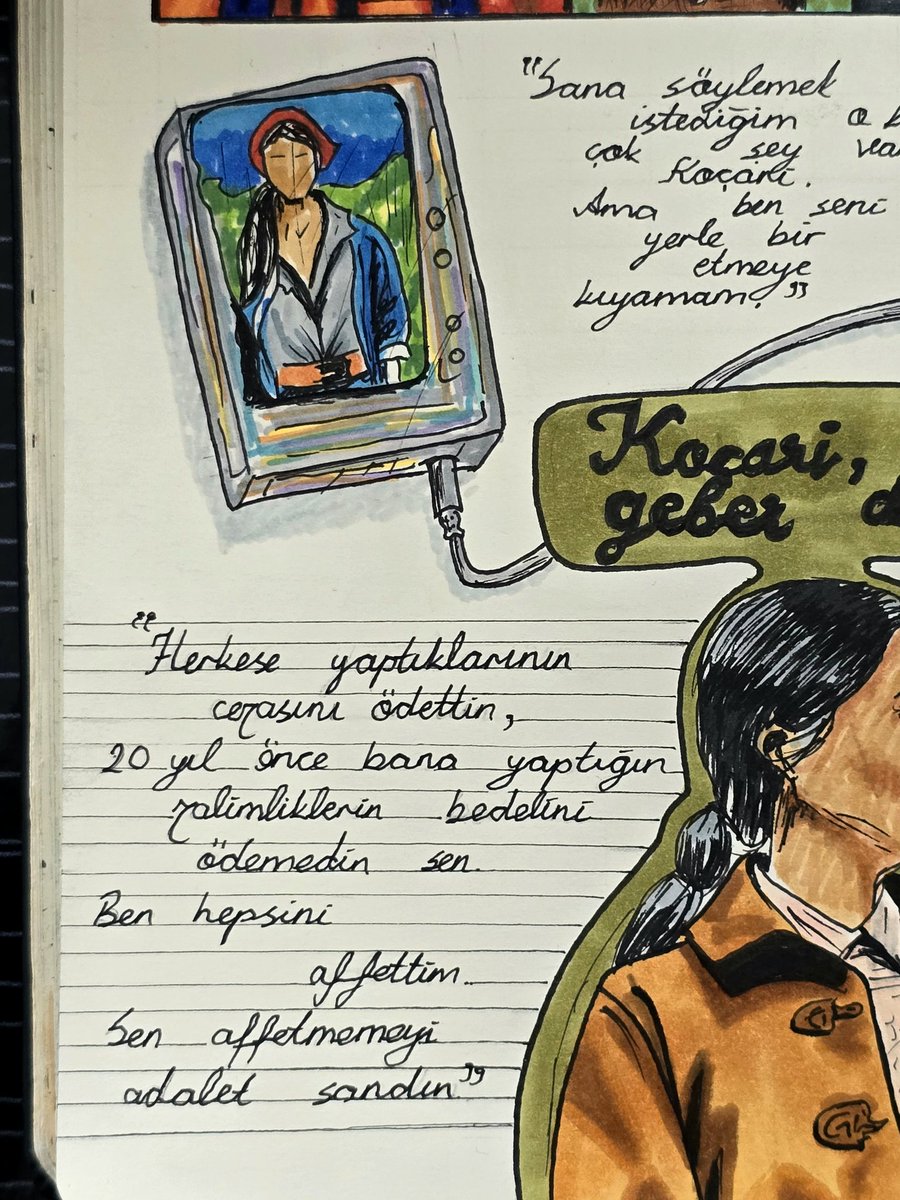 "Sana söylemek
istediğim o k
çok şey var
Koçari.
Ama ben seni
yerle bir
etmeye
kıyamam."
Koçari,
geber d
"Herkese yaptıklarının
cezasını ödettin,
20 yıl önce bana yaptığın
zalimliklerin bedelini
ödemedin sen.
Ben hepsini
affettim..
Sen affetmemeyi
adalet sandın"